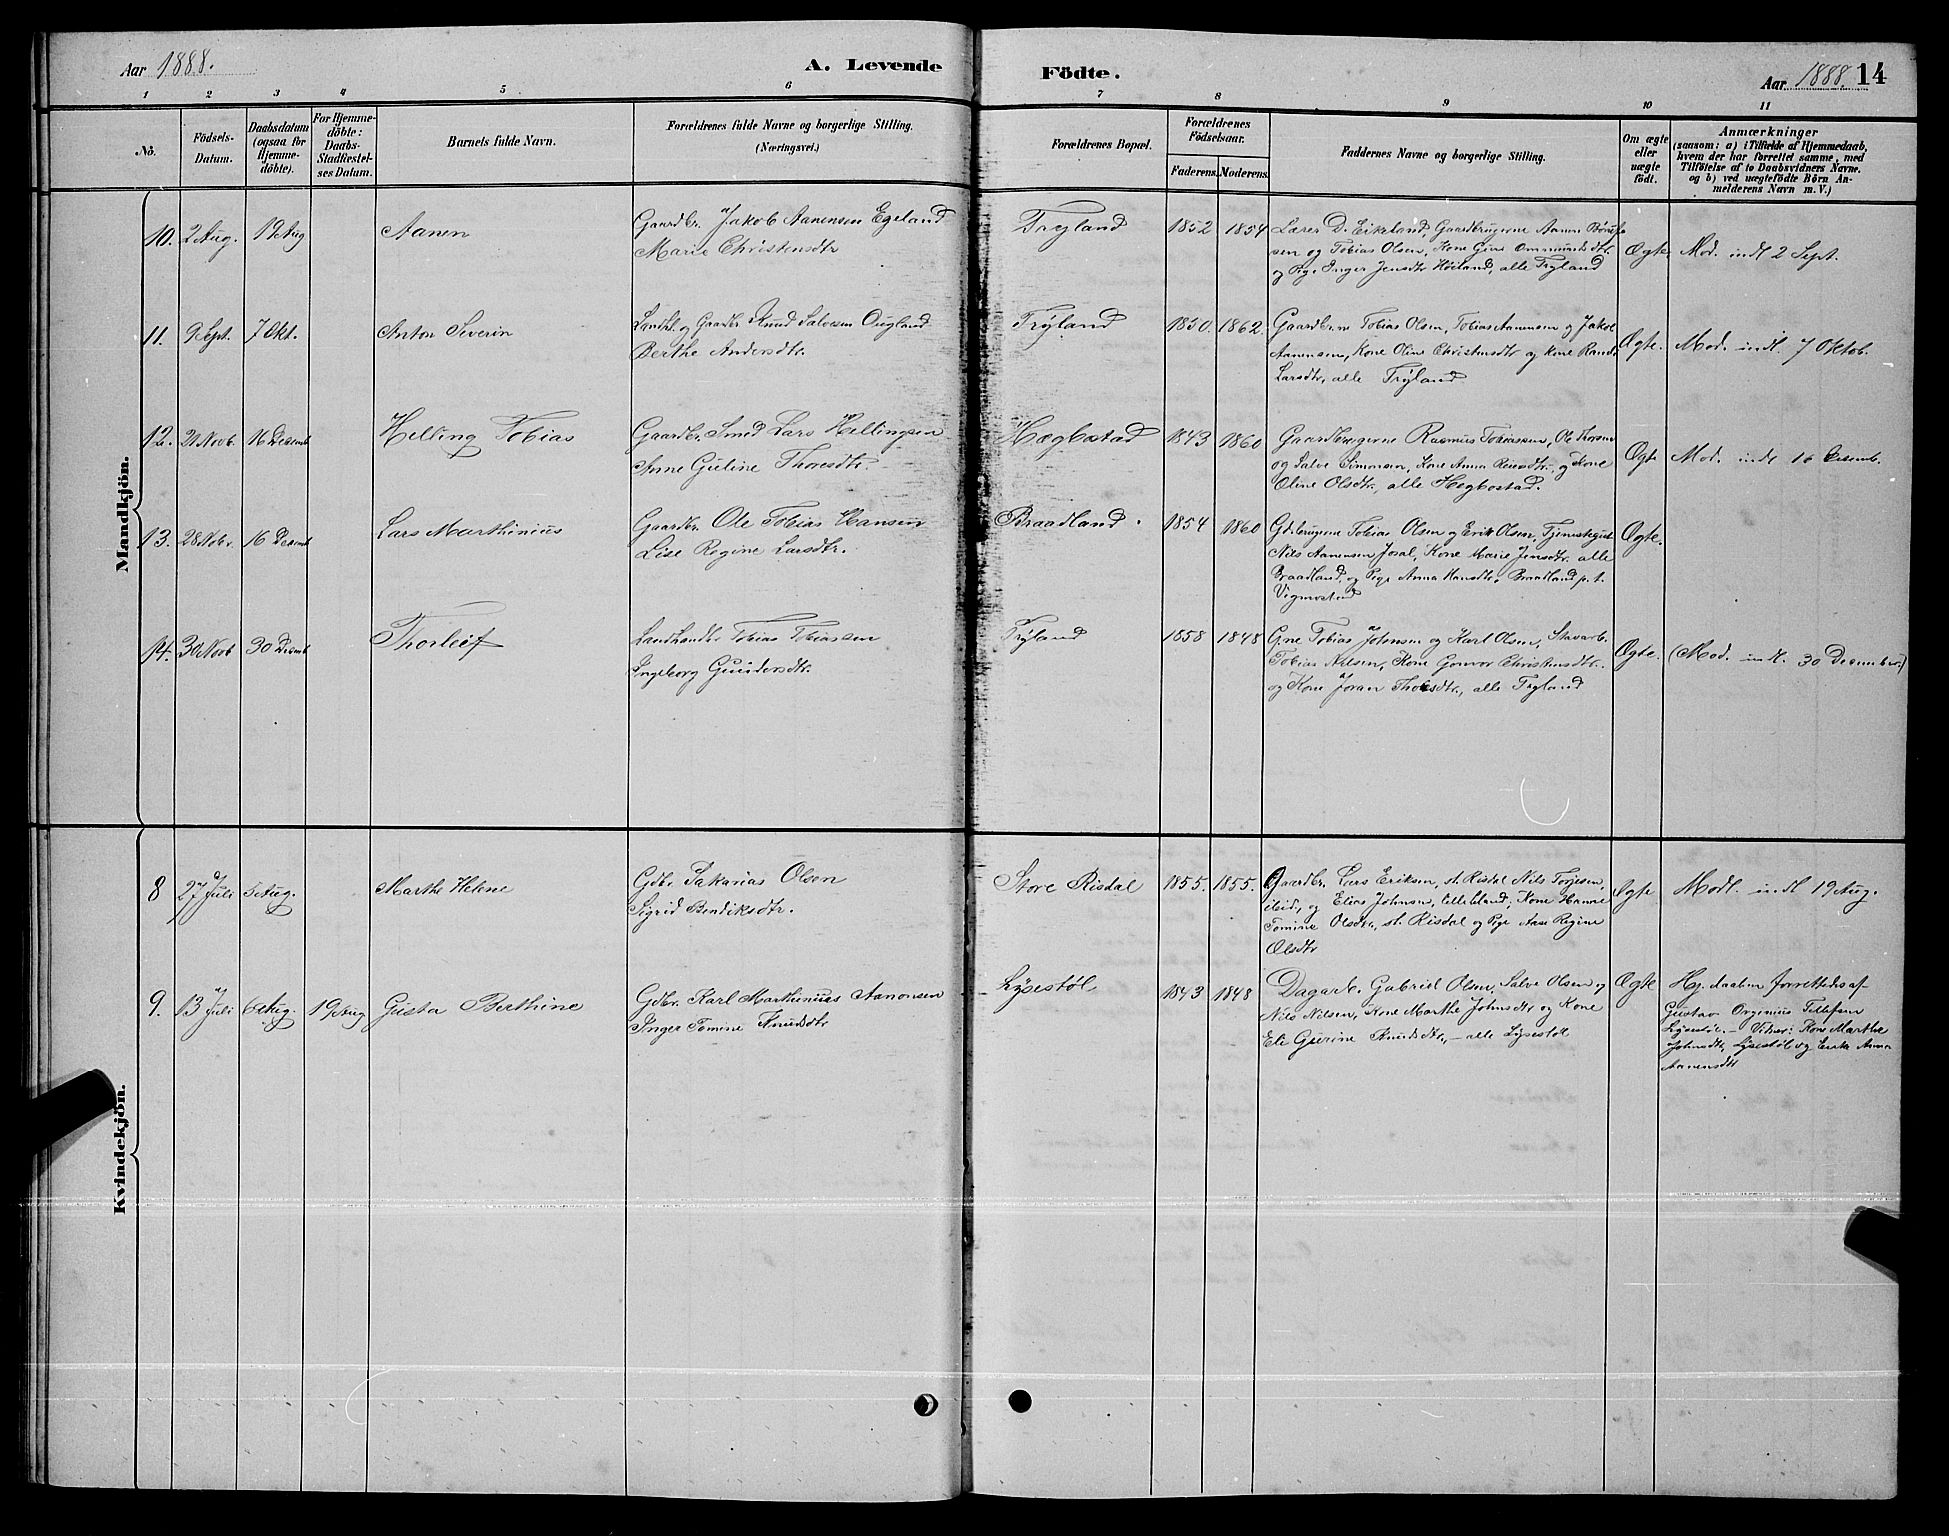 Aar 1888.
A. Levende
Födte.
Aar 1888 14
1 2 3 4 5 6 7 8 9 10 11
No.
Födsels-
Datum.
Daabsdatum
(ogsaa for
Hjemme-
döbte).
For Hjemme-
döbte:
Daabs-
Stadfæstel-
ses Datum.
Barnets fulde Navn.
Forældrenes fulde Navne og borgerlige Stilling.
(Næringsvei.)
Forældrenes Bopæl.
Forældrenes
Födselsaar.
Faderens. Moderens.
Faddernes Navne og borgerlige Stilling.
Om ægte
eller
uægte
födt.
Anmærkninger
(saasom: a) i Tilfælde af Hjemmedaab,
hvem der har forrettet samme, med
Tilföielse af to Daabsvidners Navne.
og b) ved uægtefödte Börn An-
melderens Navn m. V.)
Mandkjön.
10. 2 Aug. 19 Aug
Aanen
Gaardbr. Jakob Aanensen Egeland
Marie Christensdtr
Tryland
1852 1854
Lærer D. Eikeland, Gaardbrugerne Aanen
sen og Tobias Olsen, Kone Guri Ommundsdtr.
og Pige Inger Jensdtr Høiland, alle Tryland
Ægte
Mod. indl 2 Sept.
11. 9 Sept. 7 Okt.
Anton Severin
Landhl. og Gaardbr Knud Salvesen Ougland
Berthe Andersdtr.
Trÿland
1850. 1862.
Gaardbrne Tobias Olsen, Tobias Aanensen og Jakob
Aanensen, Kone Oline Christensdtr og Kone Randi
Larsdtr, alle Trÿland
Ægte.
Mod. indl. 7 Oktob.
12. 21 Novb. 16 Desemb
Helling Tobias
Gaardbr. Smed Lars Hellingsen
Anne Guline Thoresdtr.
Hægbostad
1843 1860
Gaardbrugerne Rasmus Tobiassen, Ole Thorsen
og Salve Simonsen, Kone Anna Reiersdtr. og Kone
Oline Olsdtr., alle Hægbostad.
Ægte
Mod. indl 16 Desemb.
13. 28 Nobr. 16 Desemb
Lars Marthinius
Gaardbr. Ole Tobias Hansen
Lise Regine Larsdtr.
Braadland.
1854 1860
Gdbrugerne Tobias Olsen og Erik Olsen, Tjenestegut
Nils Aanensen Josal, Kone Marie Jensdtr. alle
Braadland, og Pige Anna Hansdtr, Braadland p. t.
Vigmostad
Ægte.
14. 30 Novb 30 Desemb
Thorleif
Landhandler Tobias Tobiassen
Ingeborg Gundersdtr.
Trÿland
1858 1848
G.ne Tobias Johnsen og Karl Olsen, Stavarb.
Tobias Nilsen, Kone Gonvor Christensdtr.
og Kone Joran Thorsdtr., alle Tryland
Ægte.
(Mod. indl. 30 Desember.)
Kvindekjön.
8 27 Juli 5 Aug.
Marthe Helene
Gdbr. Sakarias Olsen
Sigrid Bendiksdtr.
Store Risdal
1855. 1855.
Gaardbr. Lars Eriksen, st. Risdal Nils Torjesen,
ibid., og Elias Johnsen, Kone Hanne
Tomine Olsdtr., st. Risdal og Pige Ane Regine
Olsdtr
Ægte
Modl. indl 19 Aug.
9. 13 Juli 6 Aug. 19 Aug
Gusta Berthine
Gdbr. Karl Marthinius Aanonsen
Inger Tomine Knudsdtr
Lÿsestøl
1843 1848
Dagarb. Gabriel Olsen, Salve Olsen og
Nils Nilsen, Kone Marthe Johnsdtr og Kone
Eli Gurine Knudsdtr, – alle Lÿsestøl
Ægte
Hj. daaben forrettedes af
Gustav Orginius Tellefsen
Lysestøl. – Vidner: Kone Marthe
Johnsdtr, Lysestøl og Enke Anna
Aanensdtr